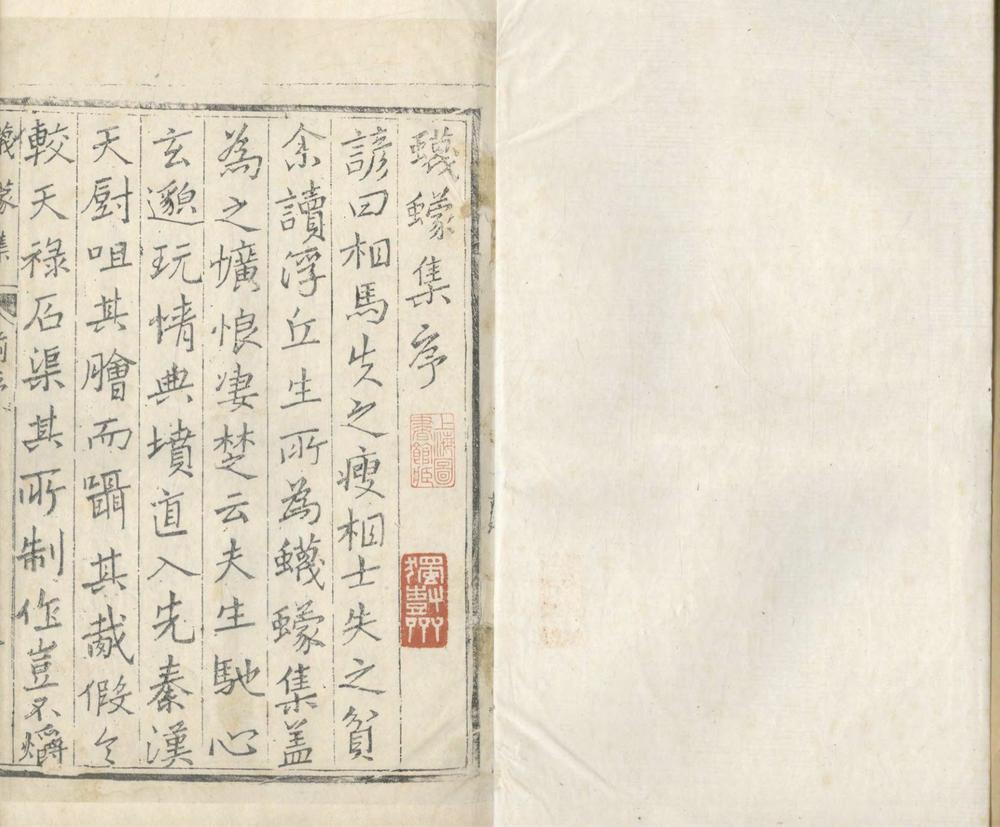 蠛蠓集序
上海圖書館藏
諺曰相馬失之瘦相士失之貧
余讀浮丘生所為蠛蠓集盖
為之壙悢凄楚云夫生馳心
玄邈玩情典墳道入先秦漢
天厨咀其膾而躡其胾假令
較天祿石渠其所制作豈不爝
蠛蒙集